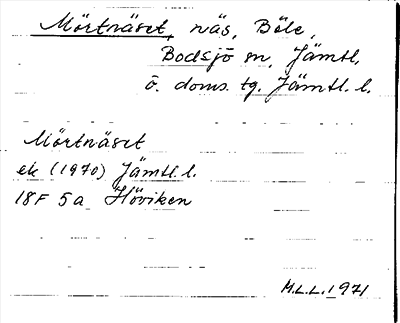 Mörtnäset, näs, Böle,
Bodsjö sn, Jämtl,
ö. doms. tg. Jämtl. l.
Mörtnäset
ek (1970) Jämtl. l.
18F 5a Höviken
M.L.L. 1971